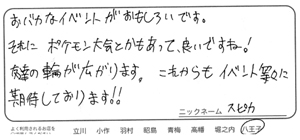 おバカなイベントがおもしろいです。
それに ポケモン大会とかもあって、良いですね!
友達の輪が広がります。これからも イベント等々に
期待しております!!
ニックネーム スピカ
よく利用されるお店を 立川 小作 羽村 昭島 青梅 高幡 堀之内 八王子